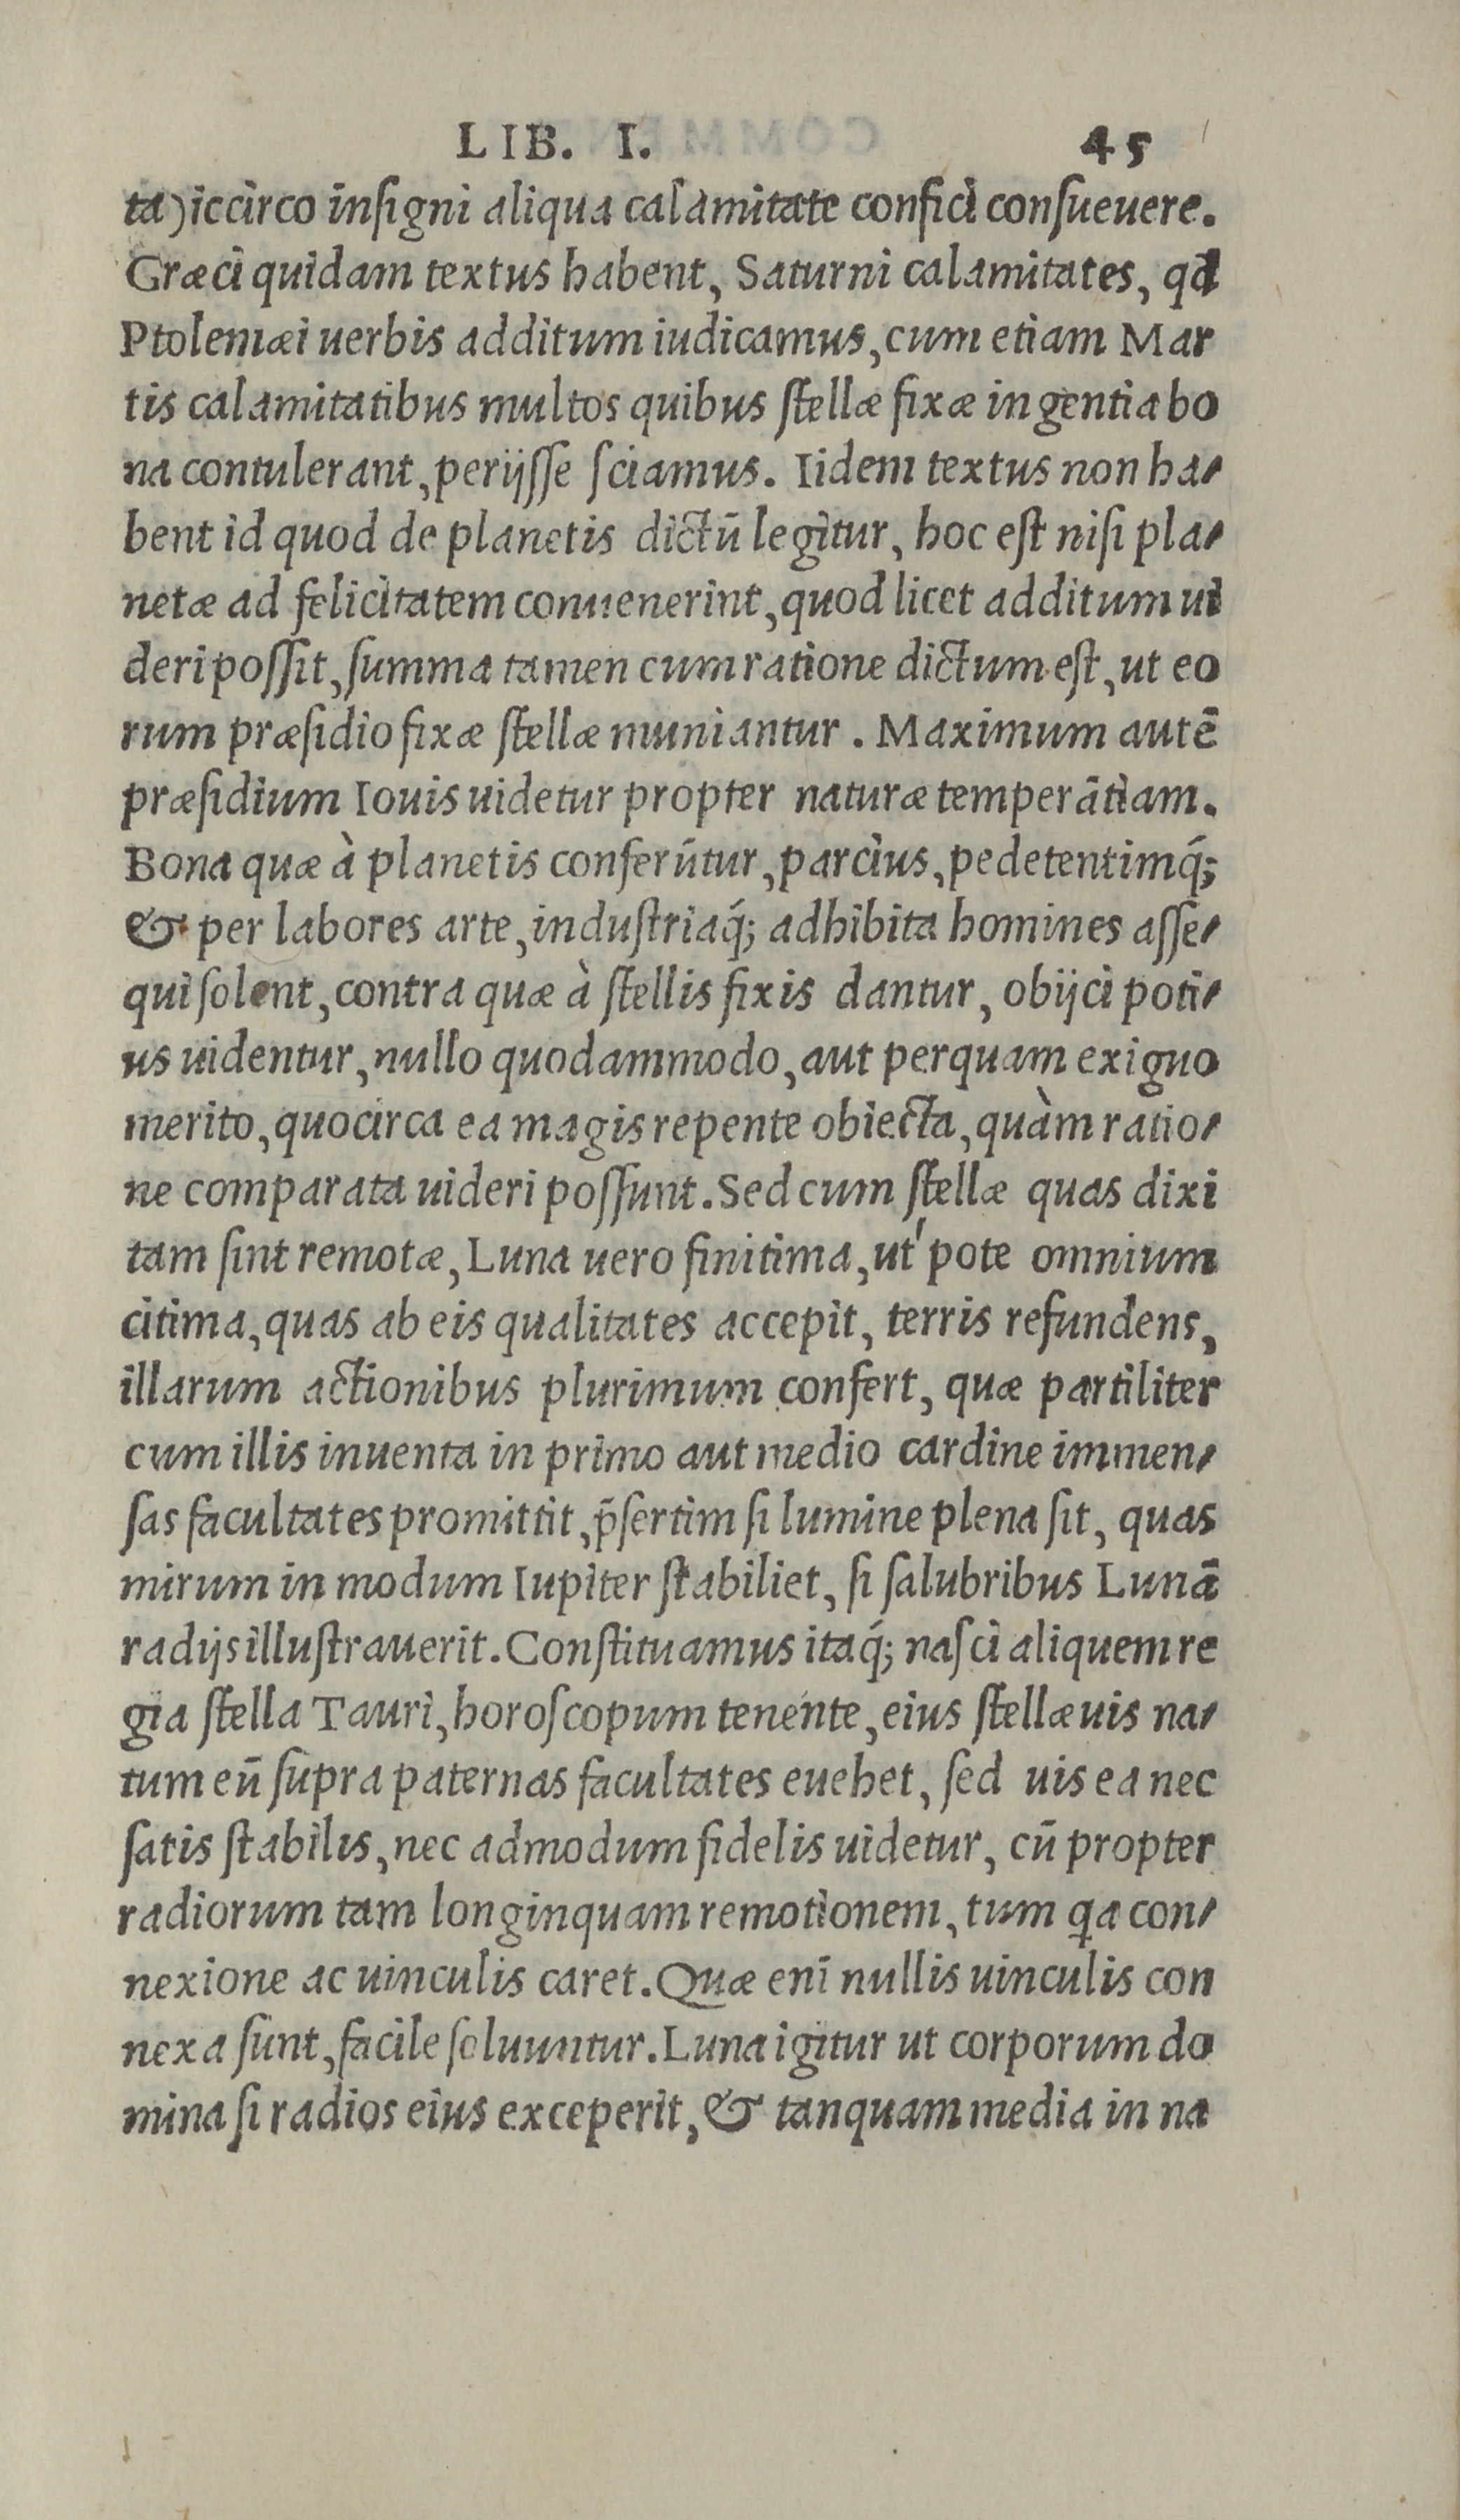 LIB. I. 45
ta) iccirco insigni aliqua calamitate confici consueuere.
Græci quidam textus habent, Saturni calamitates, qd
Ptolemæi uerbis additum iudicamus, cum etiam Mar
tis calamitatibus multos quibus stellæ fixæ ingentia bo
na contulerant, perijsse sciamus. Iidem textus non ha-
bent id quod de planetis dictū legitur, hoc est nisi pla-
netæ ad felicitatem conuenerint, quod licet additum ui
deri possit, summa tamen cum ratione dictum est, ut eo
rum præsidio fixæ stellæ muniantur. Maximum autē
præsidium Iouis uidetur propter naturæ temperātiam.
Bona quæ à planetis conferūtur, parcius, pedetentimq́;
& per labores arte, industriaq́; adhibita homines asse-
qui solent, contra quæ à stellis fixis dantur, obijci poti-
us uidentur, nullo quodammodo, aut perquam exiguo
merito, quocirca ea magis repente obiecta, quàm ratio-
ne comparata uideri possunt. Sed cum stellæ quas dixi
tam sint remotæ, Luna uero finitima, ut' pote omnium
citima, quas ab eis qualitates accepit, terris refundens,
illarum actionibus plurimum confert, quæ partiliter
cum illis inuenta in primo aut medio cardine immen-
sas facultates promittit, p̄sertim si lumine plena sit, quas
mirum in modum Iupiter stabiliet, si salubribus Lunā
radijs illustrauerit. Constituamus itaq́; nasci aliquem re
gia stella Tauri, horoscopum tenente, eius stellæ uis na-
tum eū supra paternas facultates euehet, sed uis ea nec
satis stabilis, nec admodum fidelis uidetur, cū propter
radiorum tam longinquam remotionem, tum qa con-
nexione ac uinculis caret. Quæ enī nullis uinculis con
nexa sunt, facile soluuntur. Luna igitur ut corporum do
mina si radios eius exceperit, & tanquam media in na